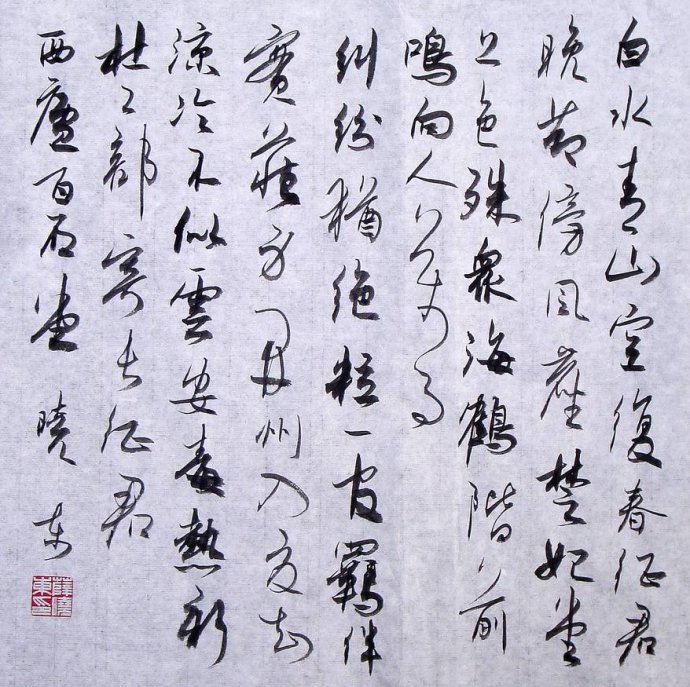 白水青山空復春征君
晚節傍風塵楚妃堂
上色殊眾海鶴階前
鳴向人萬事
糾紛猶絕粒一官羈絆
實藏身開州入夏知
涼冷不似雲安毒熱新
杜工部寄常征君
西廬百石堂 曉東
薛曉東印